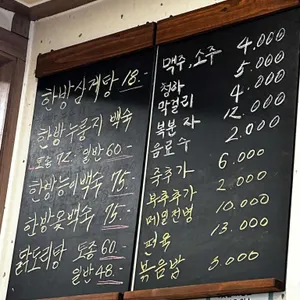 한방삼계탕 18.-
한방누룽지 백숙
토종 72. 일반 60.-
한방능이백숙 75.-
한방옻백숙 75.-
닭도리탕 토종 60.-
일반 48.-
맥주, 소주 4.000
청하 5.000
막걸리 4.000
복분자 12.000
음료수 2.000
죽추가 6.000
부추추가 2.000
메밀전병 10.000
편육 13.000
볶음밥 3.000